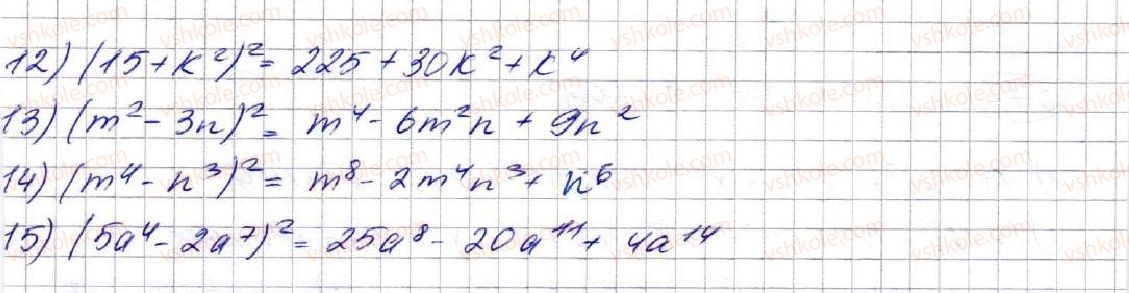 12) (15+k²)² = 225 + 30k² + k⁴
13) (m² - 3n)² = m⁴ - 6m²n + 9n²
14) (m⁴ - n³)² = m⁸ - 2m⁴n³ + n⁶
15) (5a⁴ - 2a⁷)² = 25a⁸ - 20a¹¹ + 4a¹⁴
vshkole.com